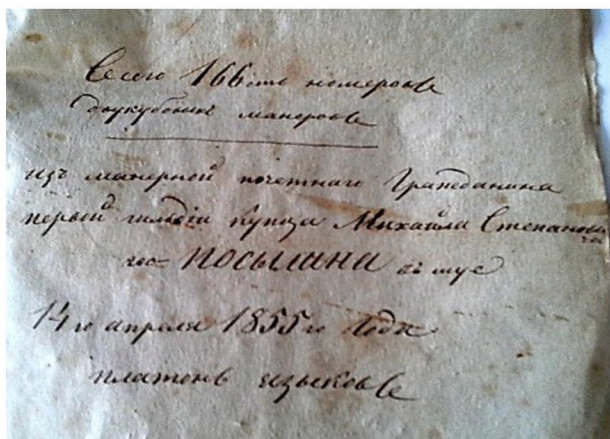 Всего 166ть номеровъ
двухубовыхъ манеровъ
изъ манерной почетнаго Гражданина
первой гильдіи купца Михайла Степанови
ча ПОСЫЛИНА въ шуе
14го апреля 1855го Года
платонъ языковъ